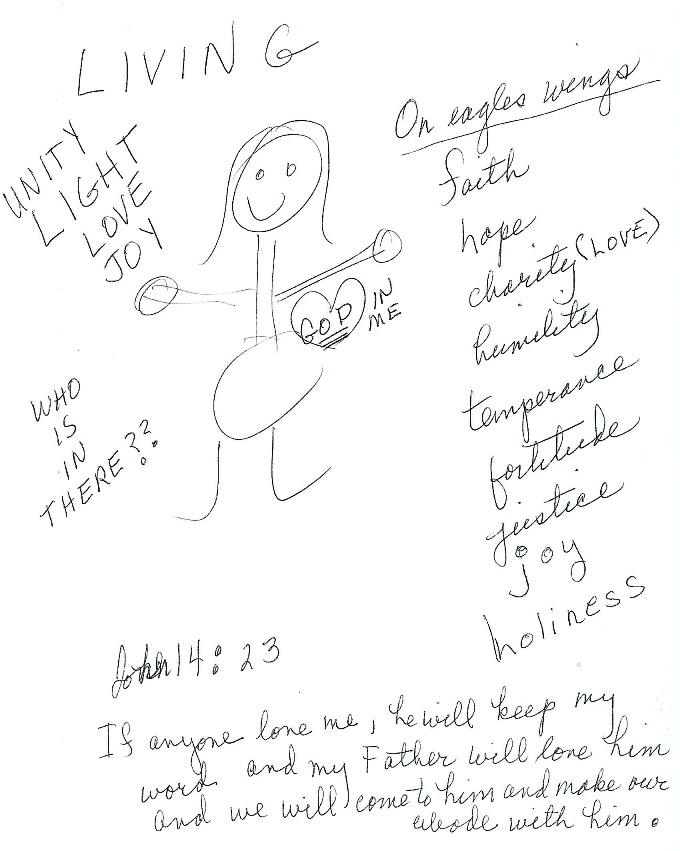 LIVING
UNITY
LIGHT
LOVE
JOY
GOD
IN
ME
WHO
IS
IN
THERE??
On eagles wings
faith
hope
charity (LOVE)
humility
temperance
fortitude
justice
joy
holiness
John 14:23
If anyone love me, he will keep my
word and my Father will love him
and we will come to him and make our
abode with him.